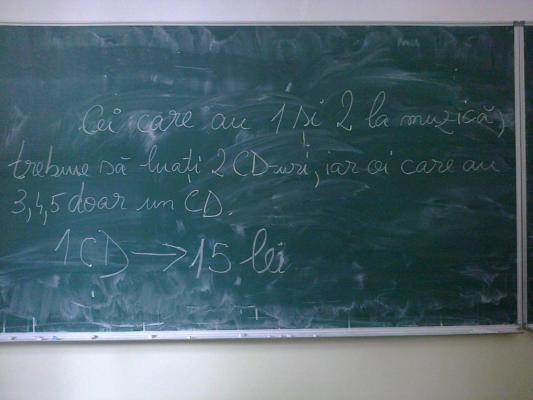 Cei care au 1 și 2 la muzică,
trebuie să luați 2 CD-uri, iar cei care au
3,4,5 doar un CD.
1CD → 15 lei